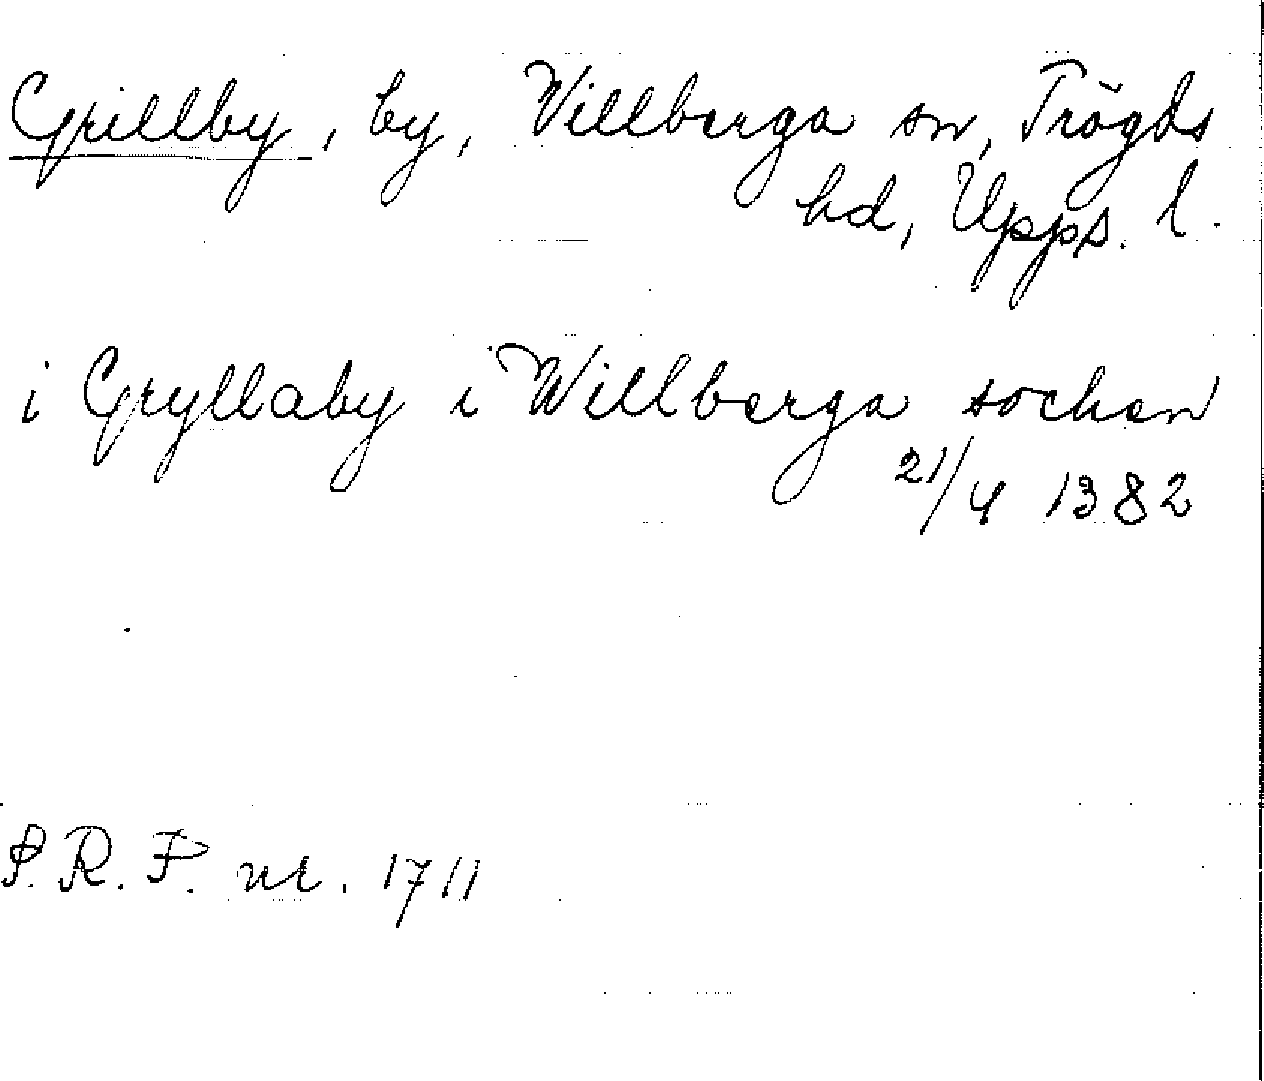 Grillby, by, Villberga sn, Trögds
hd, Upps. l.
i Gryllaby i Willberga sochen
21/4 1382
P. R. F. nr. 1711